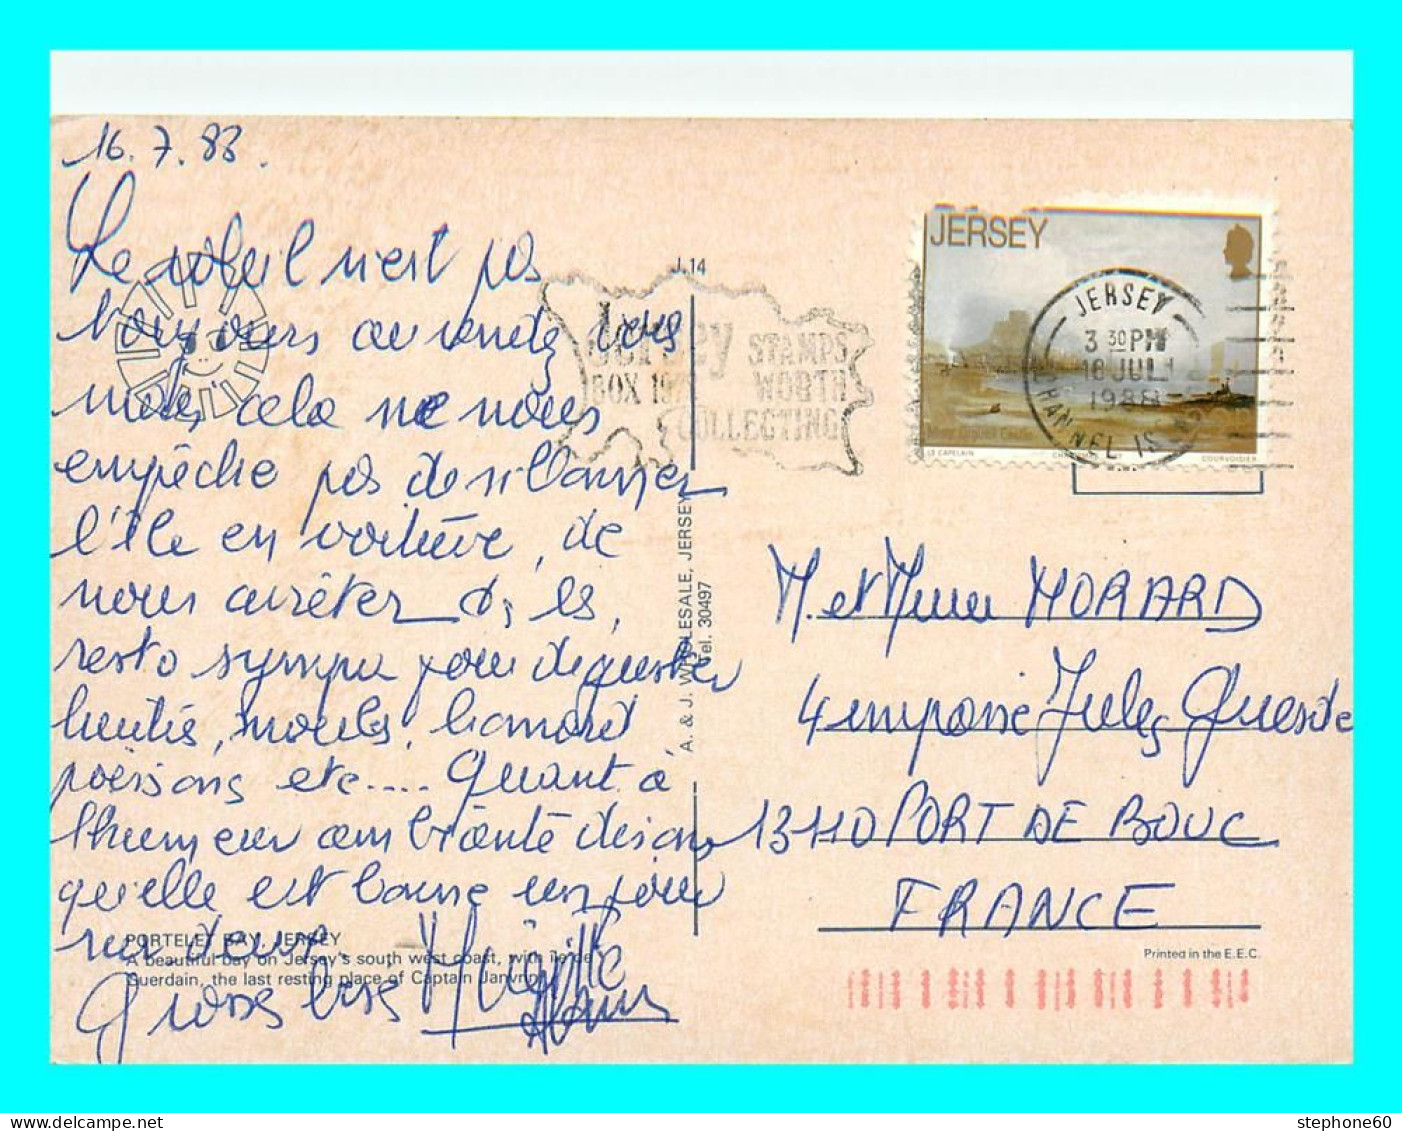 16.7.88.
Le soleil n'est pas
toujours au rendez vous
mais, cela ne nous
empêche pas de sillonner
l'île en voiture, de
nous arrêter ds, les,
resto sympa pour déguster
huitres, moules, homard
poissons etc.... Quant à
l'humeur ambiante disons
qu'elle est bonne un jour
sur deux
Grosses bises
J 14
Jersey STAMPS
BOX 1971 WORTH
COLLECTING
JERSEY
JERSEY
3 30 PM
18 JUL
1988
CHANNEL ISLANDS
LE CAPELAIN
COURVOISIER
A. & J. WHOLESALE, JERSEY
Tel. 30497
M. et Mme MORARD
4 impasse Jules Guesde
13110 PORT DE BOUC
FRANCE
PORTELET BAY, JERSEY
A beautiful bay on Jersey's south west coast, with île de
Guerdain, the last resting place of Captain Janvrin.
Printed in the E.E.C.
stephone60